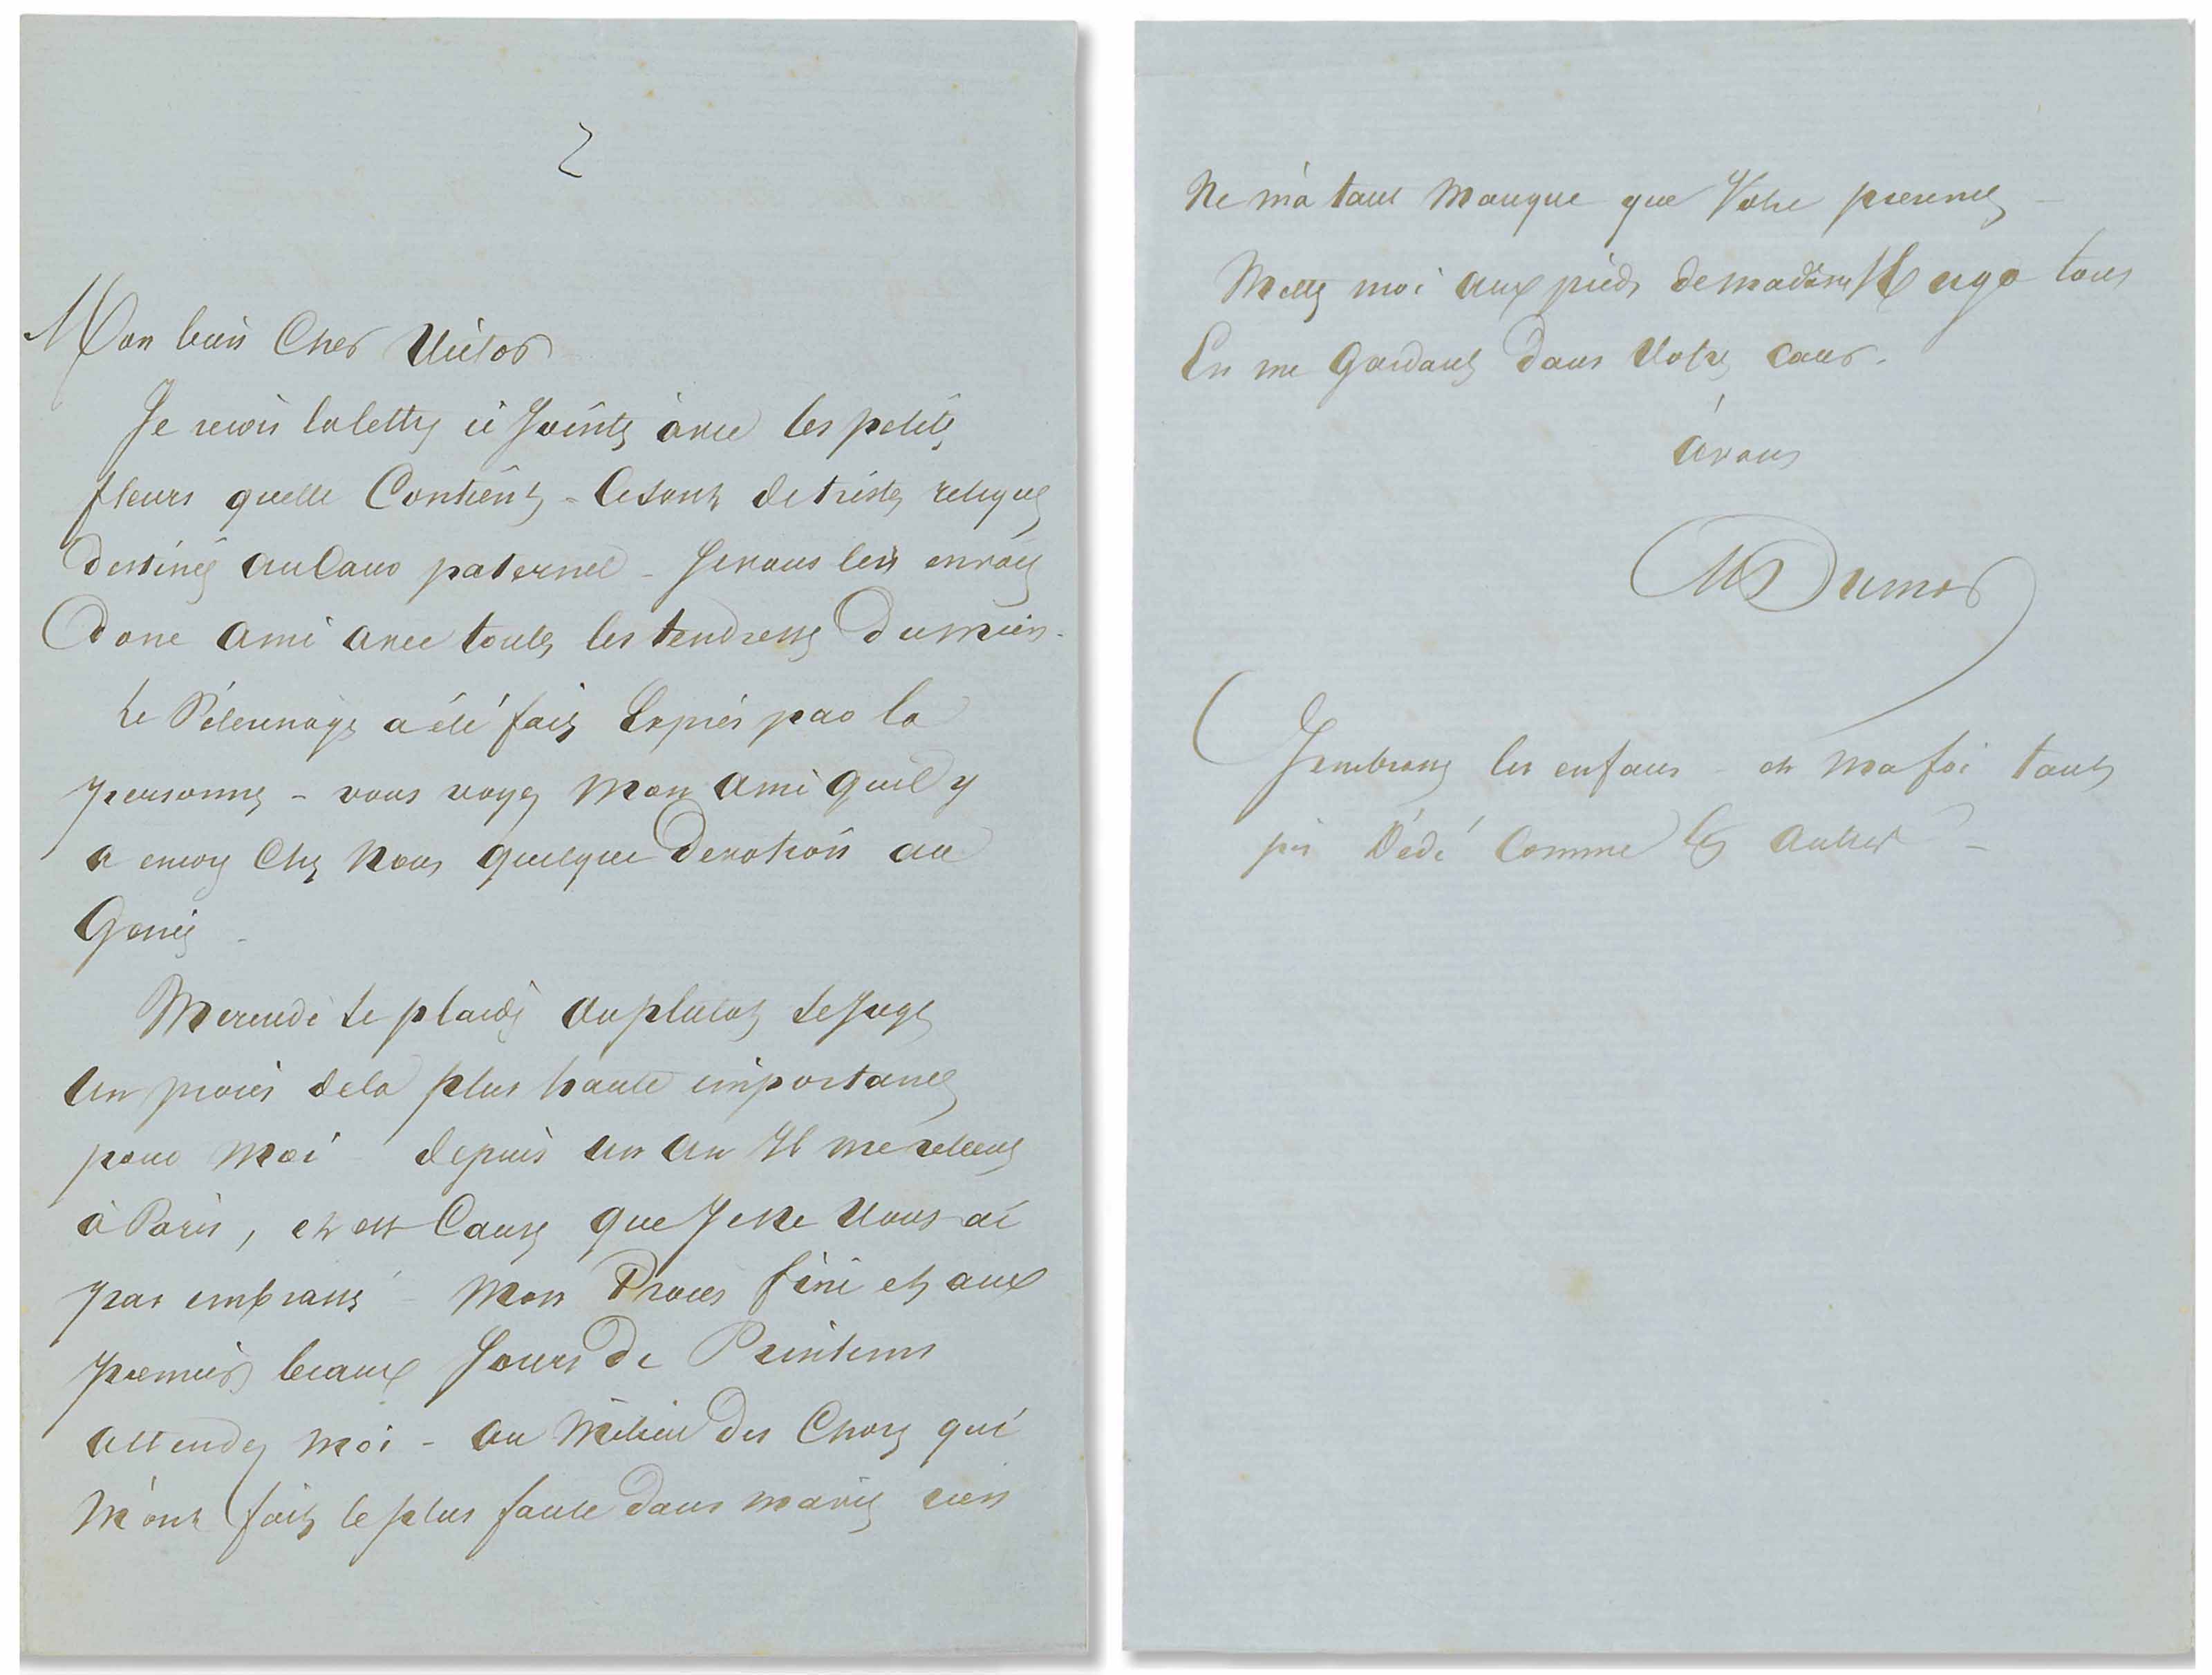 2
Mon bien Cher Victor
Je reçois la lettre ci Jointe avec les petites
fleurs quelle Contient - Ce sont de tristes reliques
destinées au Cœur paternel - Je vous les envoie
donc ami avec toutes les tendresses du mien -
Le Pélerinage a été fait Exprès par la
personne - vous voyez Mon ami quil y
a encore Chez Nous quelque Devotion au
Genie -
Mercredi Se plaide ou plutot Se Juge
Un procès de la plus haute importance
pour Moi - depuis un an Il me retient
à Paris, et est Cause que Je ne Vous ai
pas embrassé - Mon Procès fini et aux
premiers beaux Jours de Printems
attendez Moi - au Milieu des Choses qui
M'ont fait le plus faute dans ma vie rien
Ne m'a tant Manqué que Votre presence -
Mettez moi aux pieds de madame Hugo tout
En me Gardant dans Votre cœur -
à vous
Dumas
J'embrasse les enfans - et Ma foi tant
pis Dédé Comme les autres -